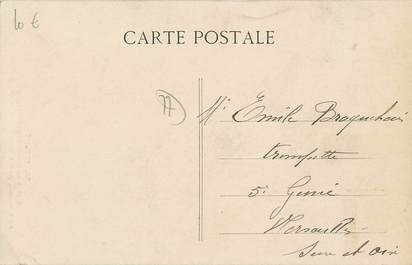 10 €
CARTE POSTALE
77
Mr Emile Braquehais
trompette
5e Génie
Versailles
Seine et Oise